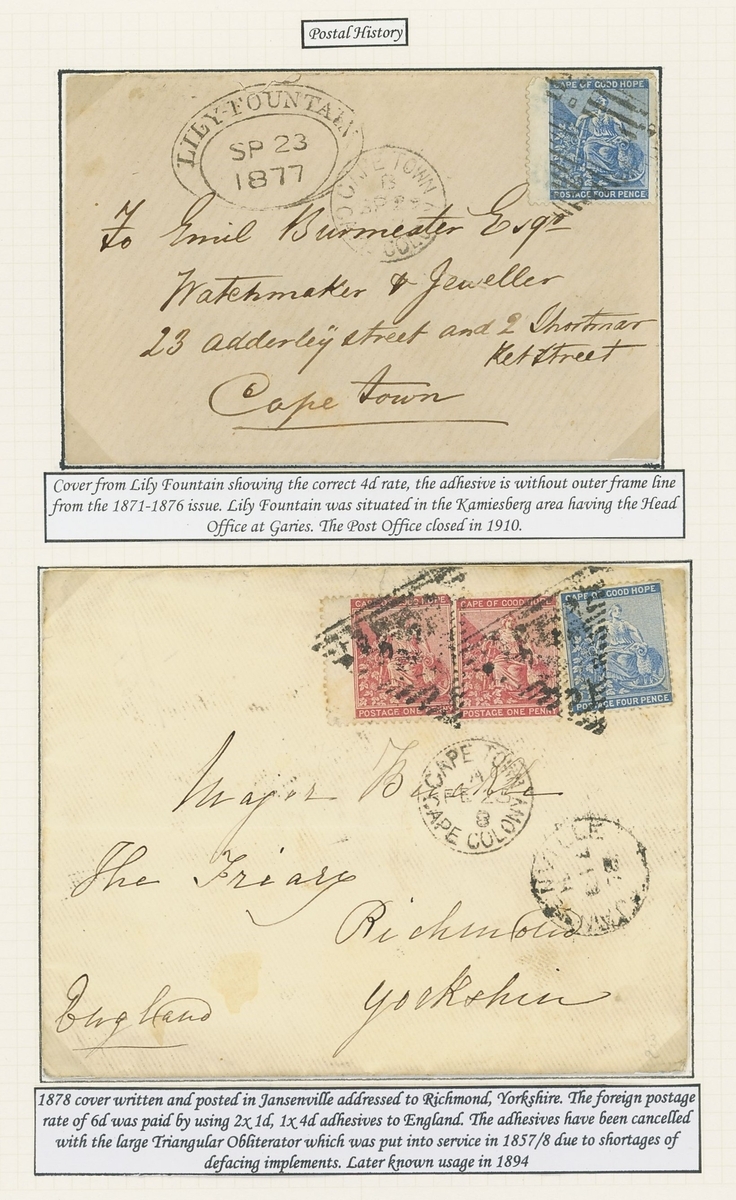 Postal History
LILY-FOUNTAIN
SP 23
1877
CAPE TOWN
CAPE OF GOOD HOPE
POSTAGE FOUR PENCE
To Emil Burmester Esqr
Watchmaker & Jeweller
23 adderley street and 2 Shortmar
ket street
Cape Town
Cover from Lily Fountain showing the correct 4d rate, the adhesive is without outer frame line
from the 1871-1876 issue. Lily Fountain was situated in the Kamiesberg area having the Head
Office at Garies. The Post Office closed in 1910.
CAPE OF GOOD HOPE
POSTAGE ONE
CAPE OF GOOD HOPE
POSTAGE ONE PENN
CAPE OF GOOD HOPE
POSTAGE FOUR PENCE
CAPE TOWN
CAPE COLONY
Major
The Friary
Richmond
Yorkshire
England
1878 cover written and posted in Jansenville addressed to Richmond, Yorkshire. The foreign postage
rate of 6d was paid by using 2x 1d, 1x 4d adhesives to England. The adhesives have been cancelled
with the large Triangular Obliterator which was put into service in 1857/8 due to shortages of
defacing implements. Later known usage in 1894